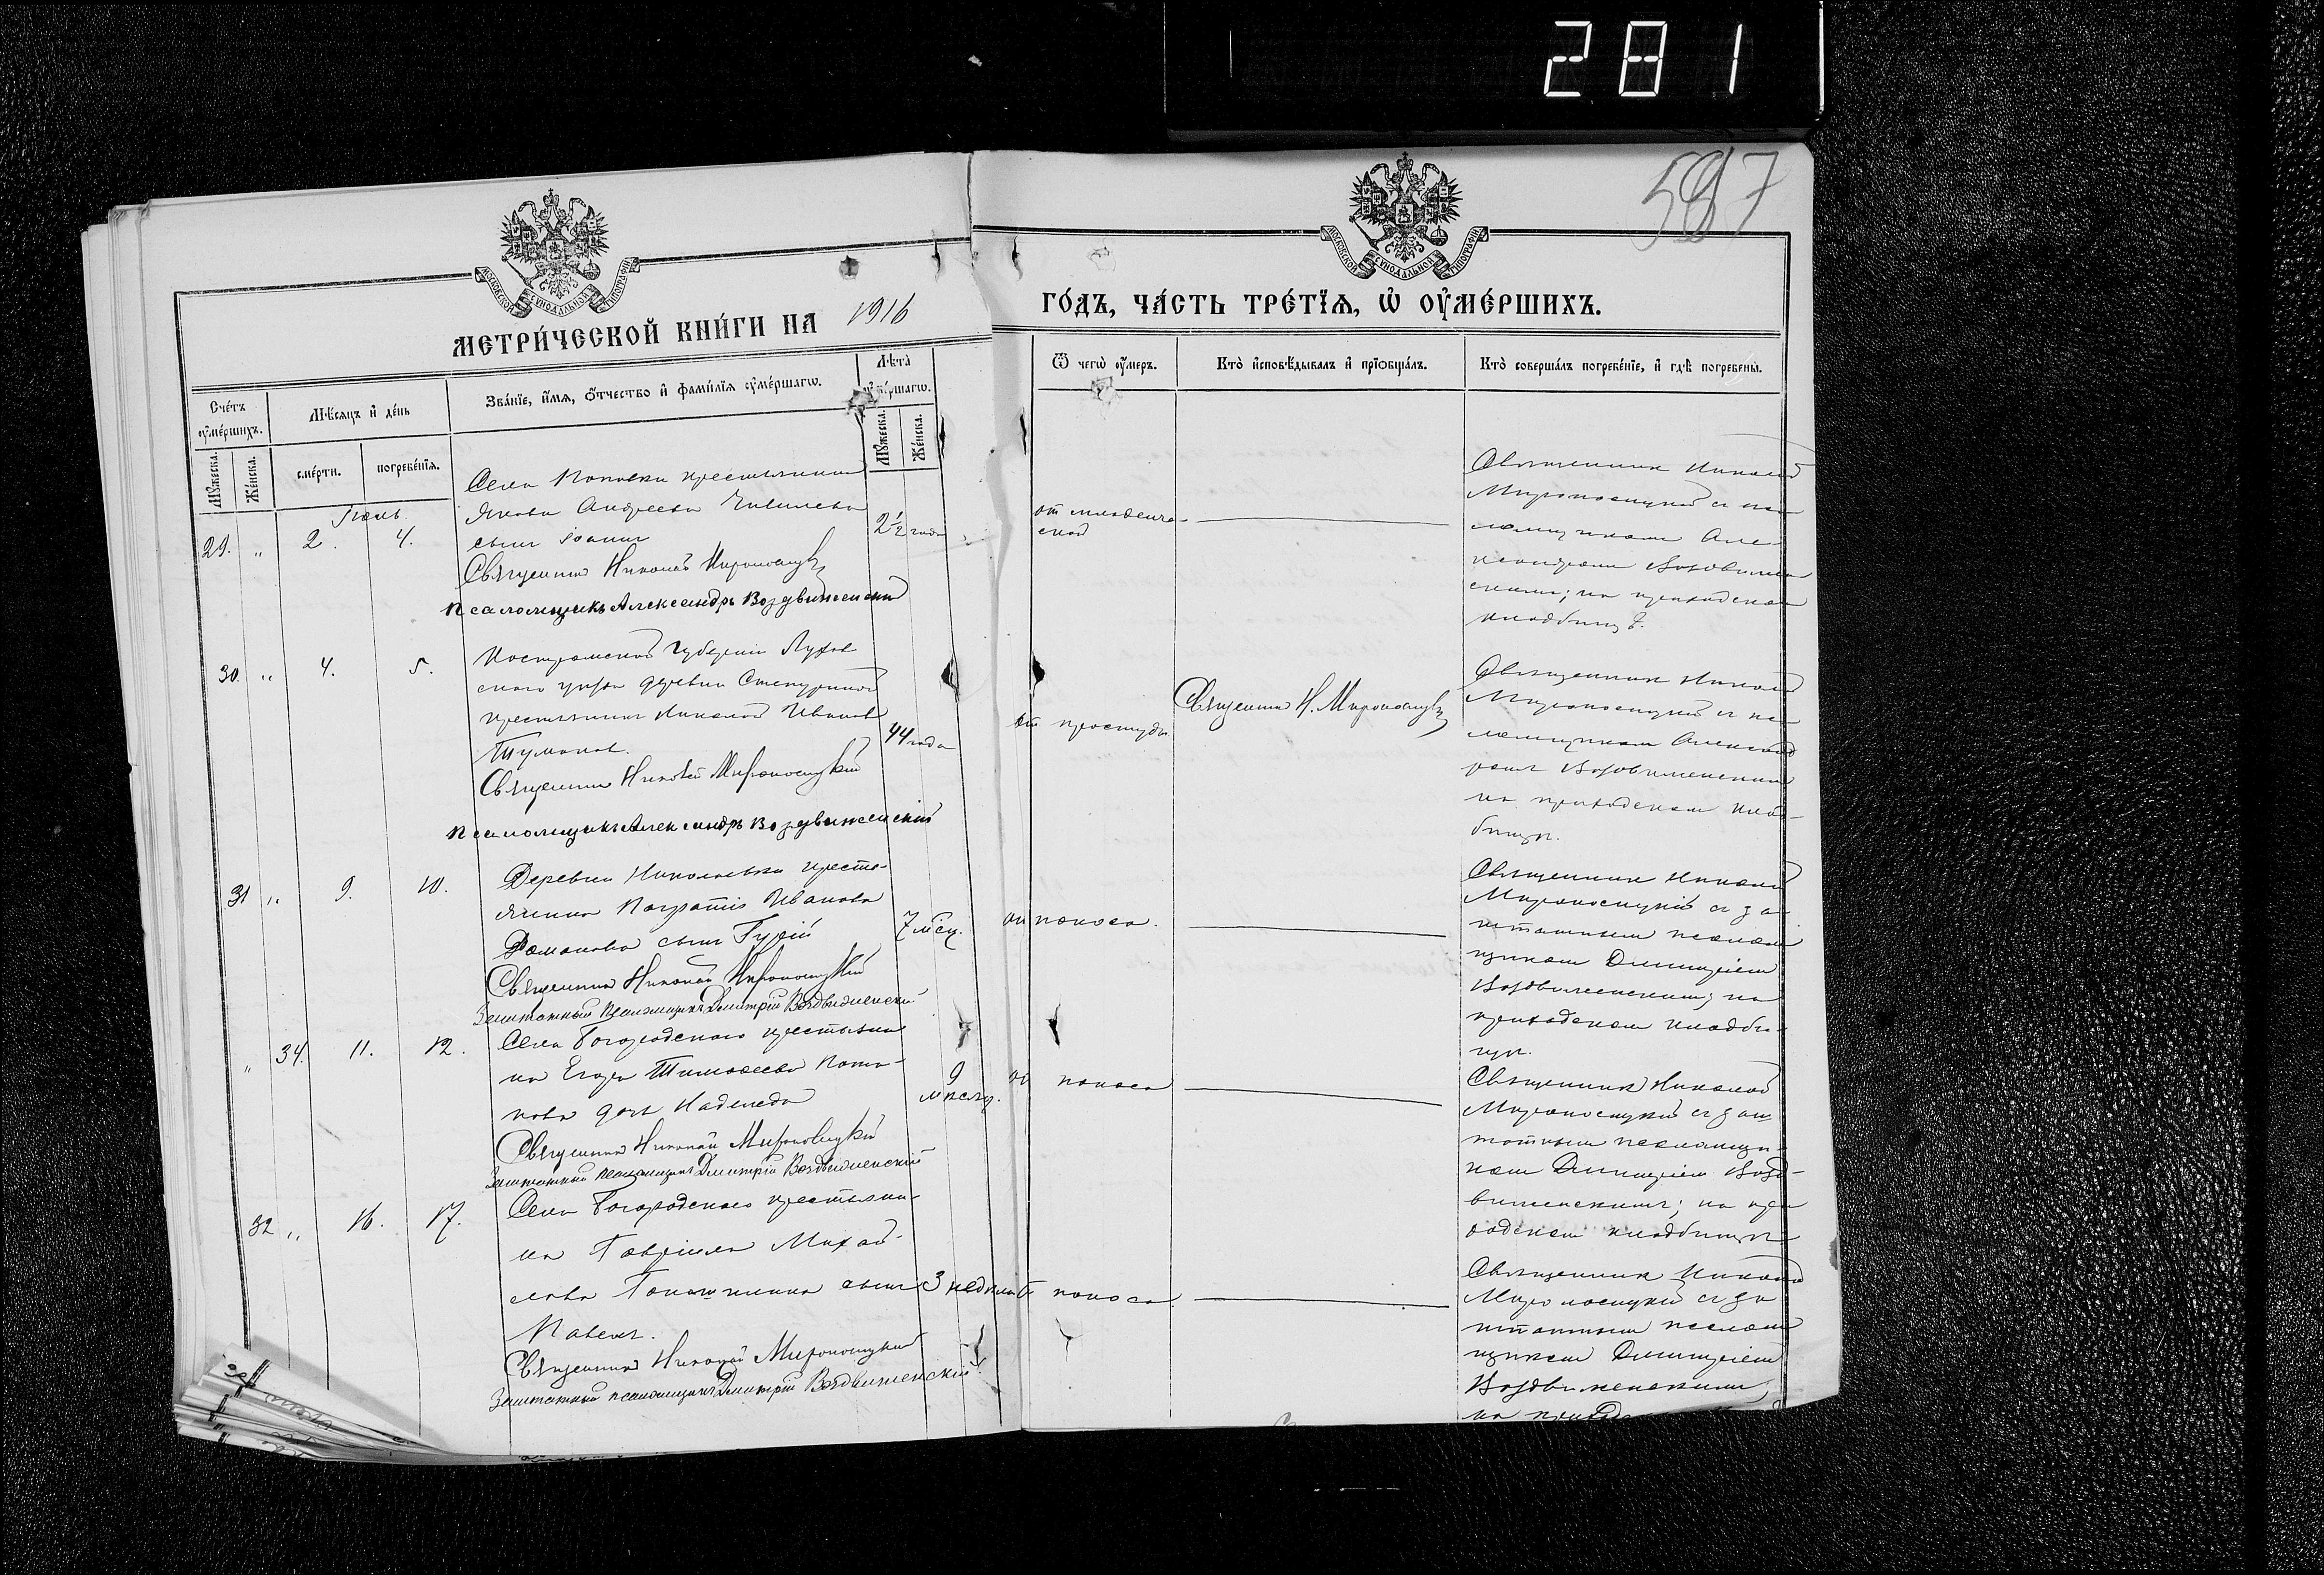 281
587
МОСКОВСКОЙ СѴНОДАЛЬНОЙ ТИПОГРАФІИ
МОСКОВСКОЙ СѴНОДАЛЬНОЙ ТИПОГРАФІИ
МЕТРИ́ЧЕСКОЙ КНИ́ГИ НА 1916
ГО́ДЪ, ЧА́СТЬ ТРЕ́ТЇѦ, Ѡ҆ ОУ҆МЕ́РШИХЪ.
Сче́тъ оу҆ме́ршихъ.
Мꙋ́жеска.
Же́нска.
Мѣ́сѧцъ и҆ де́нь
сме́рти.
погребе́нїѧ.
Зва́нїе, и҆́мѧ, ѻ҆́тчество и҆ фами́лїѧ оу҆ме́ршагѡ.
Лѣ́та оу҆ме́ршагѡ.
Мꙋ́жеска.
Же́нска.
Ѿ чегѡ̀ оу҆́меръ.
Кто̀ и҆сповѣ́дывалъ и҆ прїѡбща́лъ.
Кто̀ соверша́лъ погребе́нїе, и҆ гдѣ̀ погребены̀.
Іюль.
29. " 2. 4.
Села Поповки крестьянина
Якова Андреева
сынъ Іоаннъ
2½ года
Священникъ Николай Мироносицкій
Псаломщикъ Александръ Воздвиженскій
от младенче-
ской
Священникъ Николай
Мироносицкій съ пса-
ломщикомъ Але-
ксандромъ Воздвижен-
скимъ; на приходскомъ
кладбищѣ.
30. " 4. 5.
Костромской губерніи Лухов
скаго уѣзда деревни
крестьянинъ Николай Ивановъ
Тумановъ.
44 года
Священникъ Николай Мироносицкій
Псаломщикъ Александръ Воздвиженскій
от простуды
Священникъ Н. Мироносицкій
Священникъ Николай
Мироносицкій съ пса-
ломщикомъ Александ
ромъ Воздвиженскимъ
на приходскомъ клад-
бищѣ.
31 " 9. 10.
Деревни Николаевки кресть-
янина Иванова
Романова сынъ Гурій
7 мѣсц.
Священникъ Николай Мироносицкій
Заштатный псаломщикъ Дмитрій Воздвиженскій
от поноса.
Священникъ Николай
Мироносицкій съ за
штатнымъ псалом
щикомъ Димитріемъ
Воздвиженскимъ; на
приходскомъ кладби-
щѣ.
" 34. 11. 12.
Села Богородскаго крестьяни
на Егора Тимоѳеева
дочь Надежда
9 мѣсяц.
Священникъ Николай Мироносицкій
Заштатный псаломщикъ Дмитрій Воздвиженскій
от поноса
Священникъ Николай
Мироносицкій съ заш
татнымъ псаломщи-
комъ Димитріемъ Возд-
виженскимъ; на при
ходскомъ кладбищѣ
32 " 16. 17.
Села Богородскаго крестьяни-
на Гавріила Михай-
лова сынъ
Павелъ.
3 недѣли
Священникъ Николай Мироносицкій
Заштатный псаломщикъ Дмитрій Воздвиженскій
от поноса
Священникъ Николай
Мироносицкій съ за
штатнымъ псалом
щикомъ Димитріемъ
Воздвиженскимъ,
на